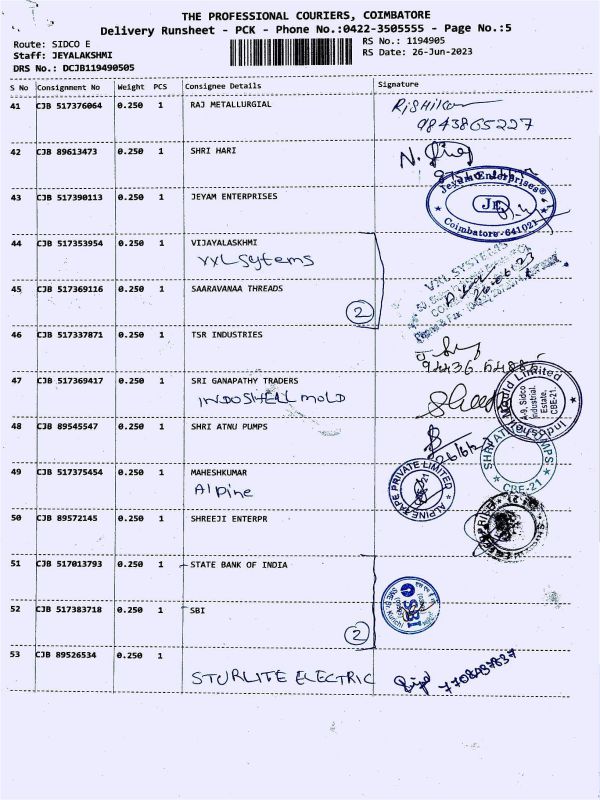 THE PROFESSIONAL COURIERS, COIMBATORE
Delivery Runsheet - PCK - Phone No.:0422-3505555 - Page No.:5
Route: SIDCO E
RS No.: 1194905
Staff: JEYALAKSHMI
RS Date: 26-Jun-2023
DRS No.: DCJB119490505
S No Consignment No Weight PCS Consignee Details Signature
41 CJB 517376064 0.250 1 RAJ METALLURGIAL
9843865227
42 CJB 89613473 0.250 1 SHRI HARI
43 CJB 517390113 0.250 1 JEYAM ENTERPRISES
Jeyam Enterprises
JE
Coimbatore-641021
44 CJB 517353954 0.250 1 VIJAYALASKHMI
VXL Sytems
VXL SYSTEMS
45 CJB 517369116 0.250 1 SAARAVANAA THREADS
2
46 CJB 517337871 0.250 1 TSR INDUSTRIES
47 CJB 517369417 0.250 1 SRI GANAPATHY TRADERS
INDOSHELL MOLD
Indoshell Mould Limited
A-9, Sidco
Industrial
Estate,
CBE-21
48 CJB 89545547 0.250 1 SHRI ATNU PUMPS
CBE-21
49 CJB 517375454 0.250 1 MAHESHKUMAR
Alpine
ALPINE TAPE PRIVATE LIMITED
50 CJB 89572145 0.250 1 SHREEJI ENTERPR
51 CJB 517013793 0.250 1 STATE BANK OF INDIA
52 CJB 517383718 0.250 1 SBI
SBI
2
53 CJB 89526534 0.250 1
STURLITE ELECTRIC